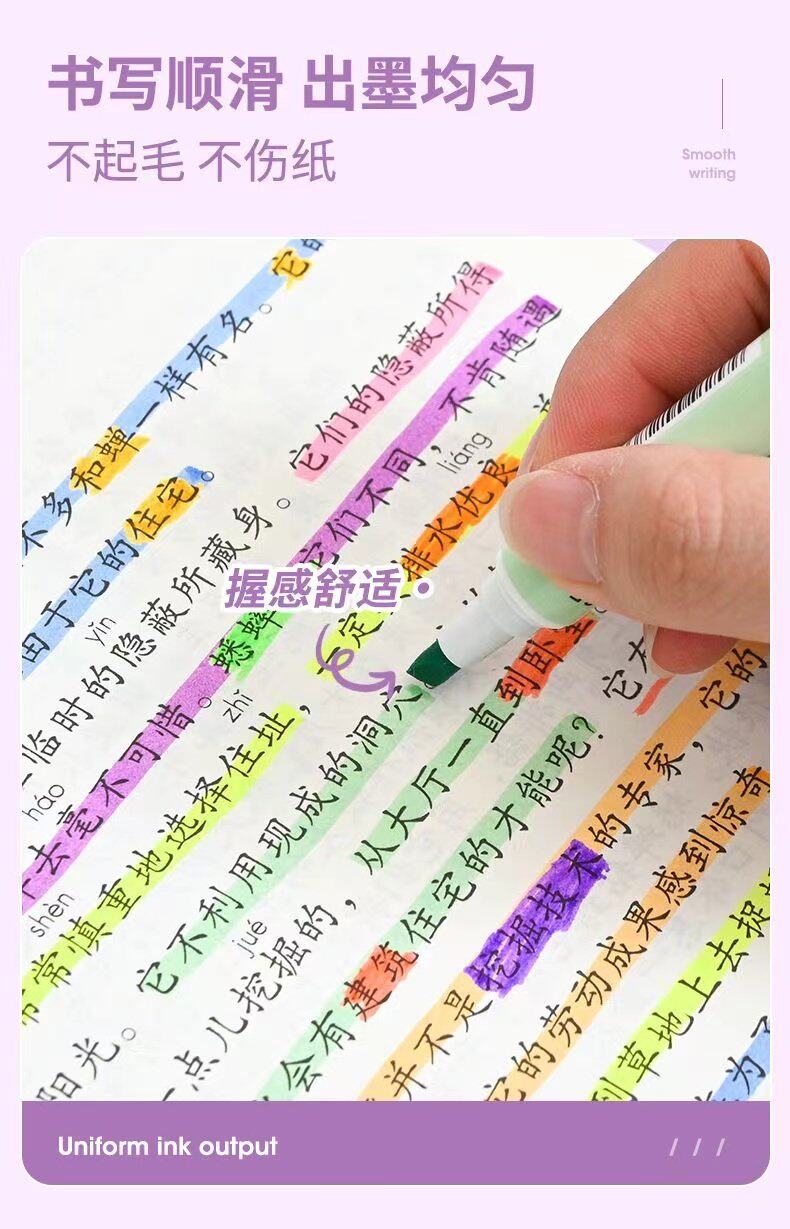 书写顺滑 出墨均匀
不起毛 不伤纸
Smooth
writing
不多和蝉一样有名。它的
由于它的住宅。
yǐn
临时的隐蔽所藏身。它们的隐蔽所得
háo
去毫不可惜。蟋蟀它们不同，不肯随遇
shèn zhǐ liáng
常慎重地选择住址，定排水优良
阳光。它不利用现成的洞穴
jué
一点儿挖掘的，从大厅一直到卧
会有建筑住宅的才能呢？它
并不是挖掘技术的专家，它的
它的劳动成果感到惊奇
到草地上去捉
为
握感舒适
Uniform ink output